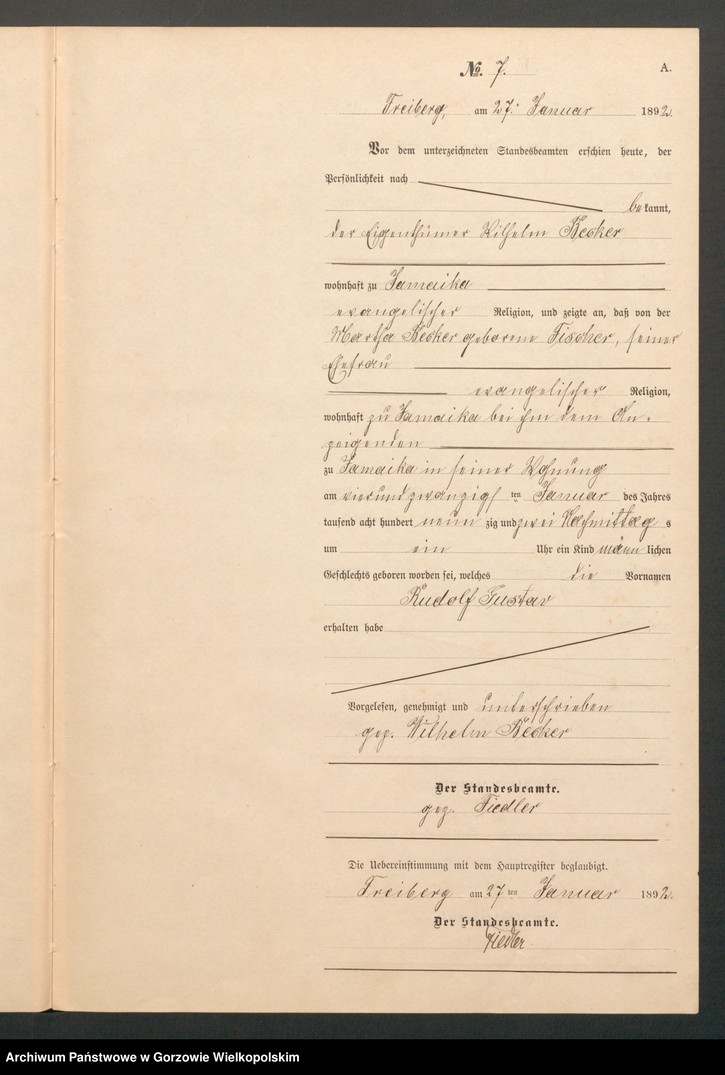 No. 7. A.
Freiberg, am 27. Januar 1892.
Vor dem unterzeichneten Standesbeamten erschien heute, der
Persönlichkeit nach
bekannt,
der Eigenthümer Wilhelm Becker
wohnhaft zu Jamaika
evangelischer Religion, und zeigte an, daß von der
Martha Becker geborene Fischer, seiner
Ehefrau
evangelischer Religion,
wohnhaft zu Jamaika bei ihm dem An-
zeigenden
zu Jamaika in seiner Wohnung
am vierundzwanzigsten Januar des Jahres
tausend acht hundert neunzig und zwei Nachmittags
um ein Uhr ein Kind männlichen
Geschlechts geboren worden sei, welches die Vornamen
Rudolf Gustav
erhalten habe
Vorgelesen, genehmigt und unterschrieben
gez. Wilhelm Becker
Der Standesbeamte.
gez. Fiedler
Die Uebereinstimmung mit dem Hauptregister beglaubigt.
Freiberg am 27ten Januar 1892.
Der Standesbeamte.
Fiedler
Archiwum Państwowe w Gorzowie Wielkopolskim